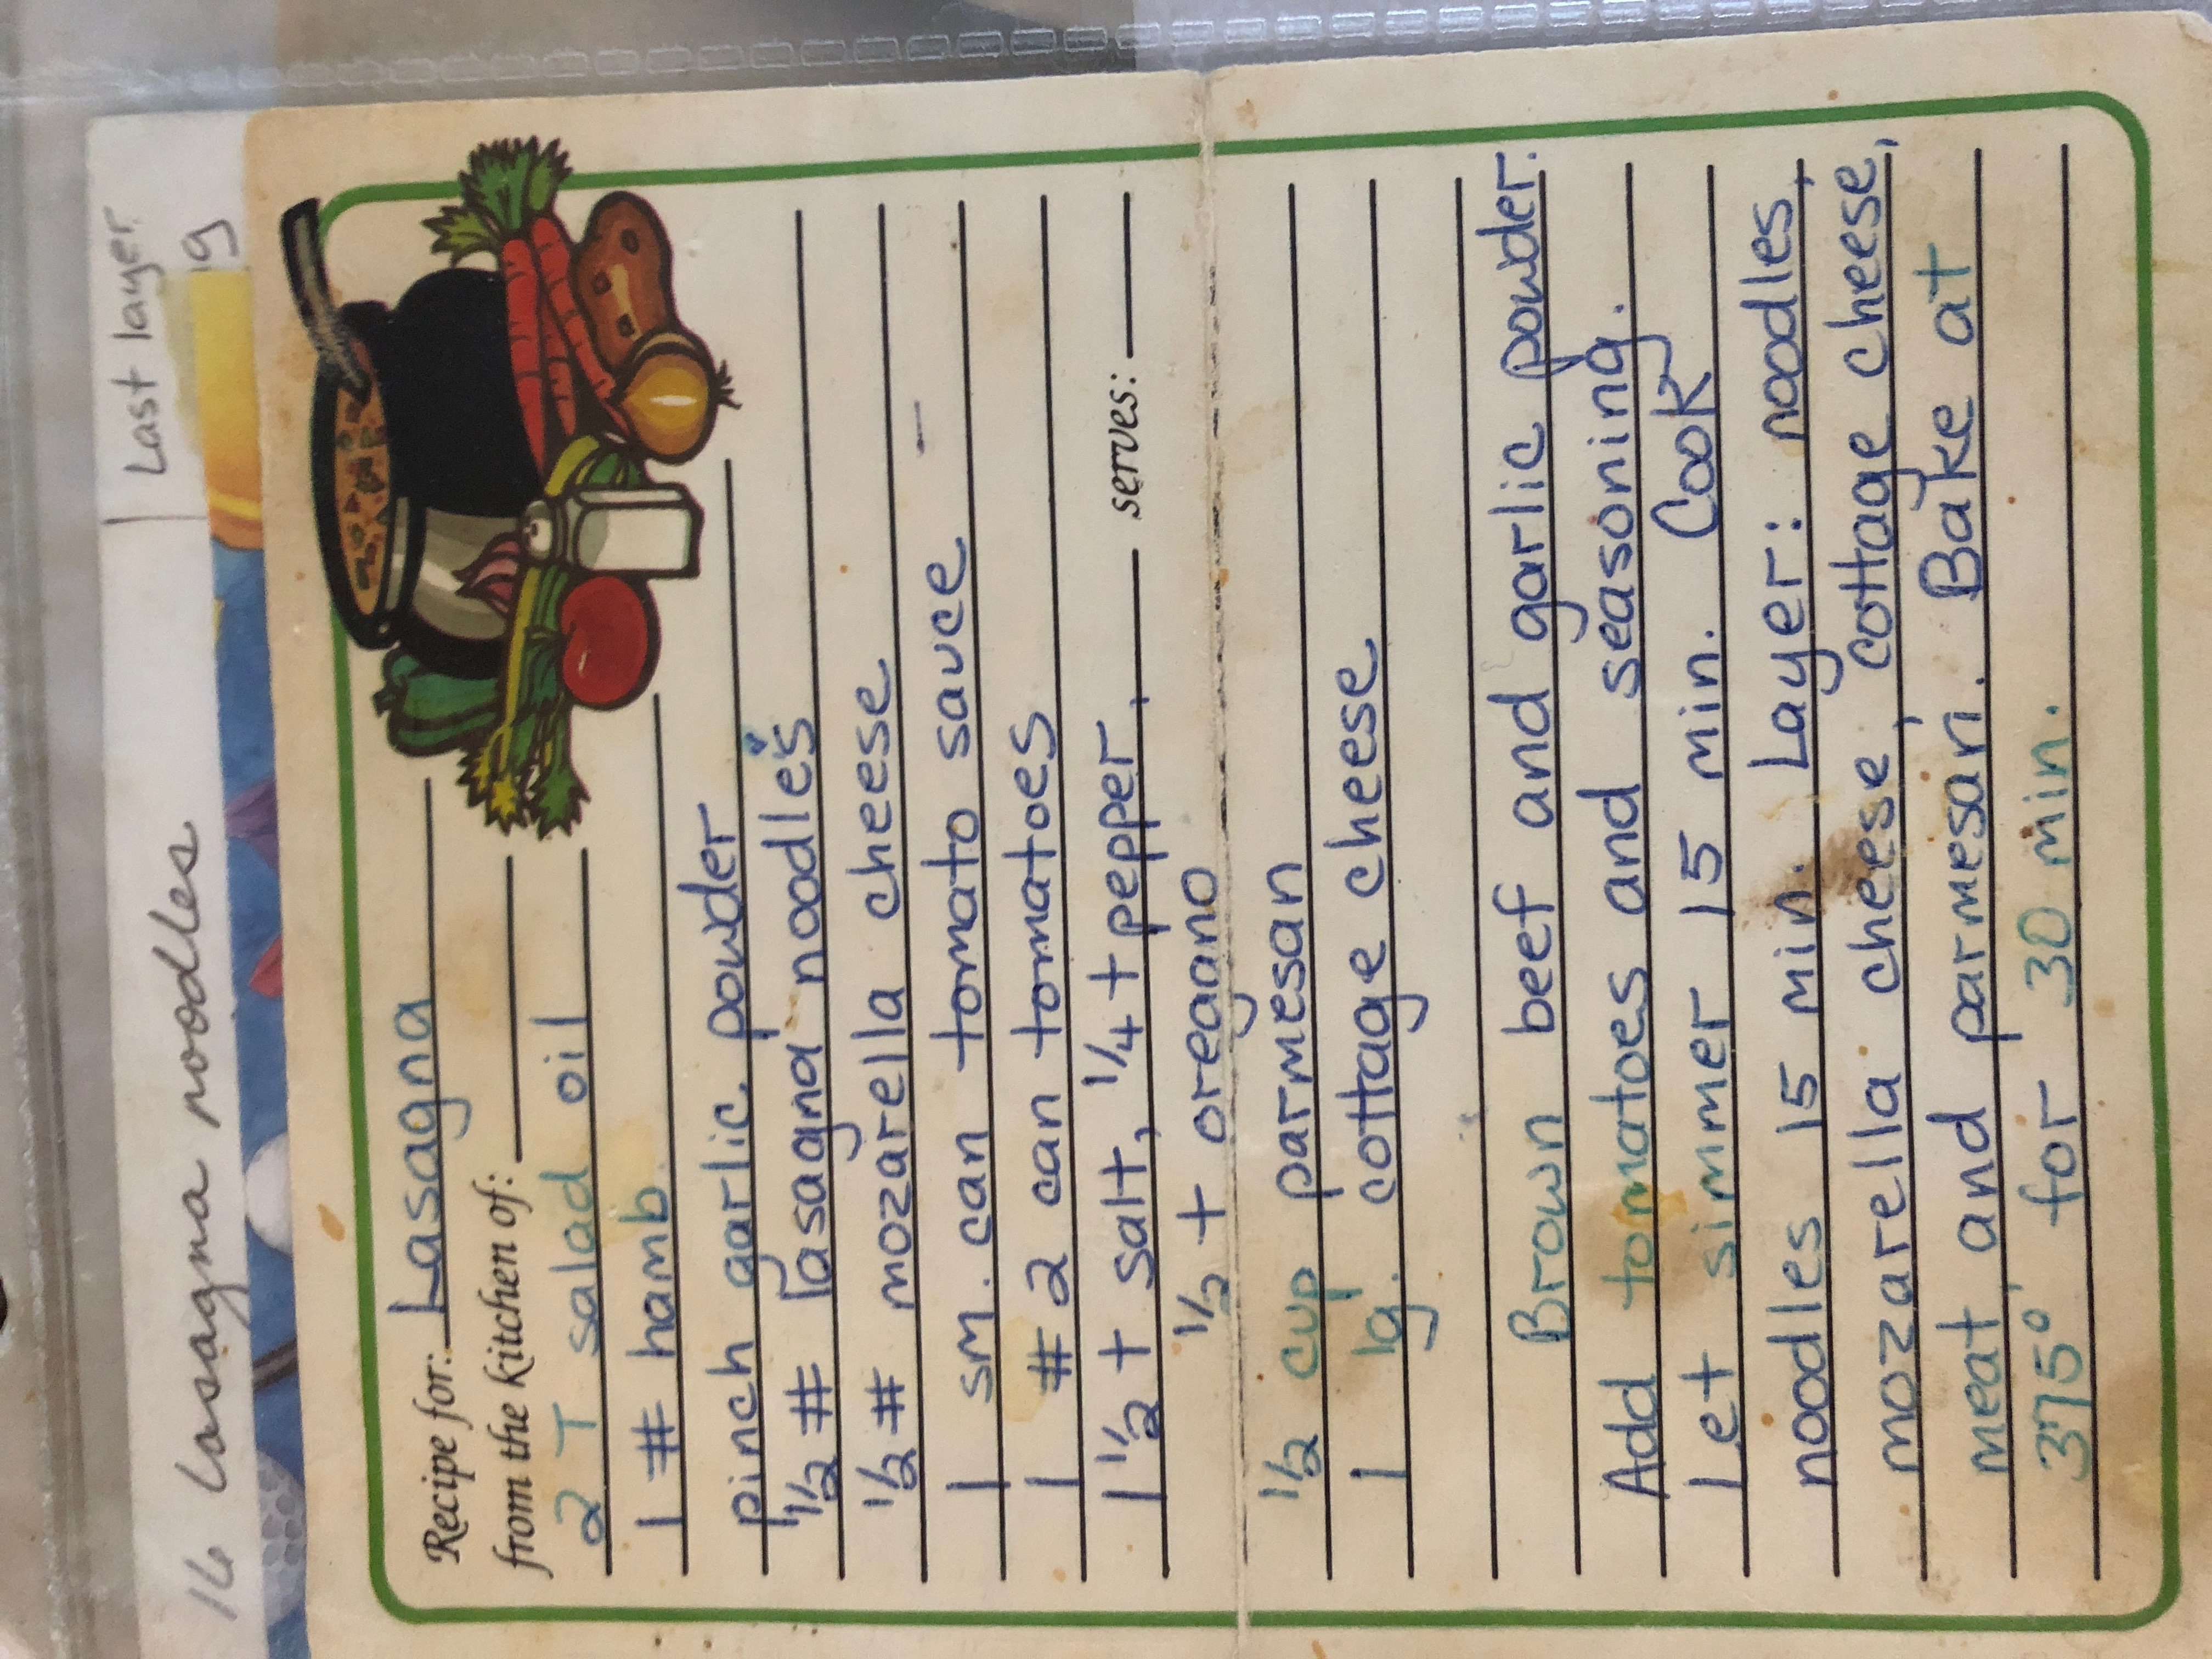 16 Lasagna noodles
Last layer
g
Recipe for: Lasagna
from the kitchen of:
2 T salad oil
1 # hamb.
pinch garlic powder
1/2 # lasagna noodles
1/2 # mozarella cheese
1 sm. can tomato sauce
1 #2 can tomatoes
1 1/2 t salt, 1/4 t pepper,
serves:
1/2 t oregano
1/2 cup parmesan
1 lg. cottage cheese
Brown beef and garlic powder.
Add tomatoes and seasoning.
Let simmer 15 min. Cook
noodles 15 min. Layer: noodles,
mozarella cheese, cottage cheese,
meat, and parmesan. Bake at
375° for 30 min.